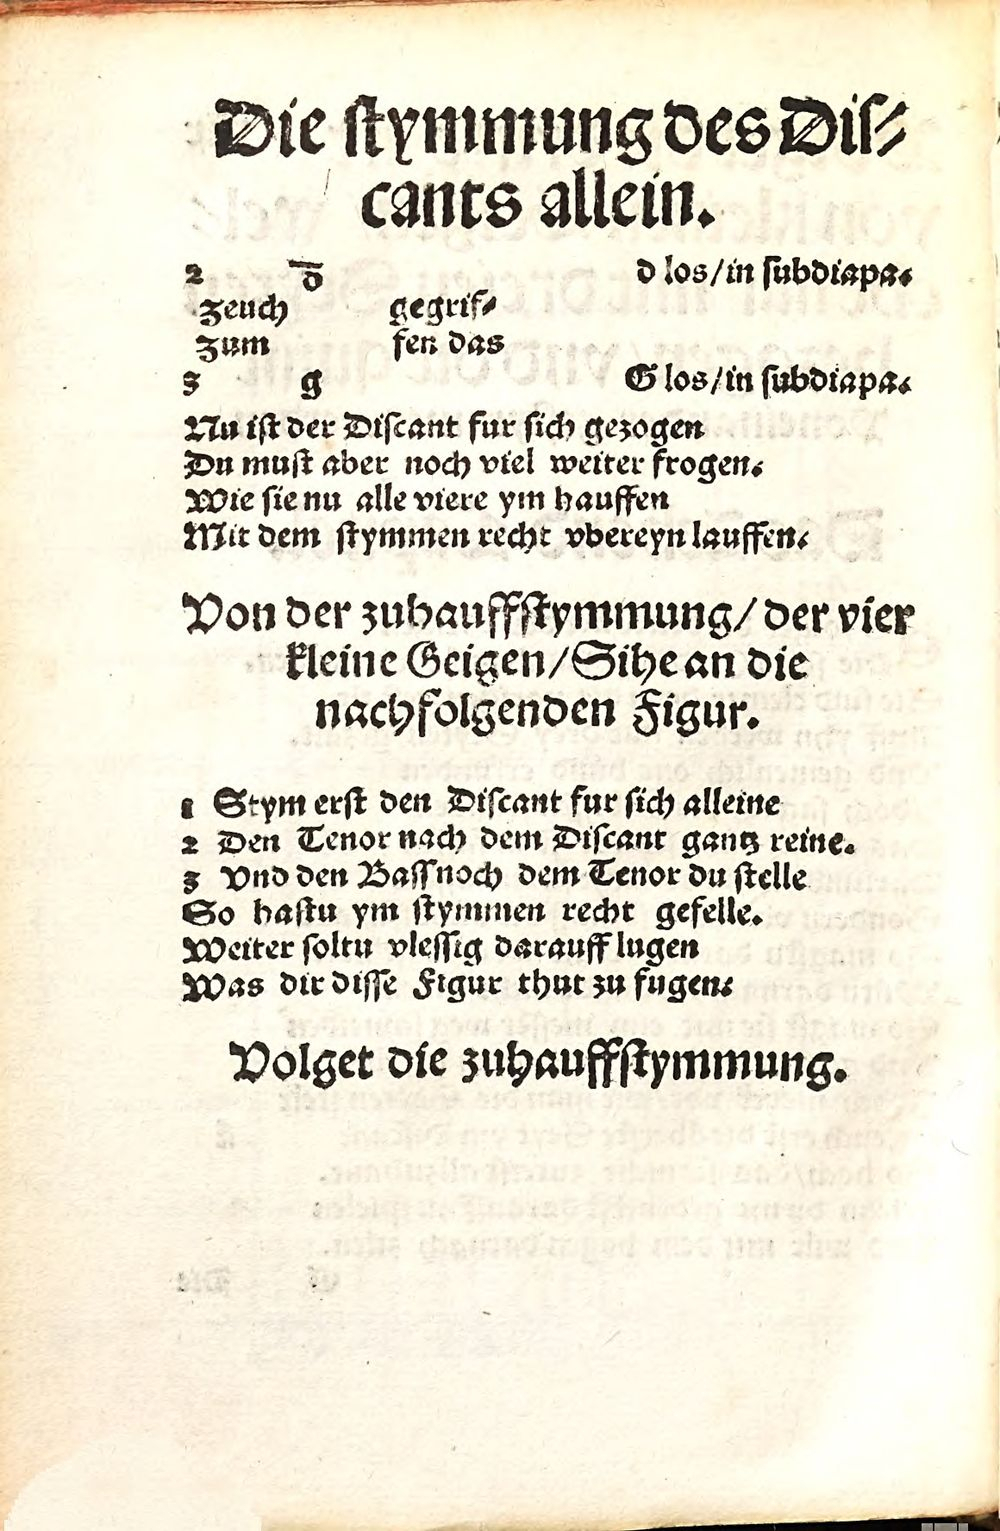 Die ſtymmung des Diſ⸗
cants allein.
2 d̅ d los/in ſubdiapa.
zeuch gegrif⸗
zum fen das
3 g G los/in ſubdiapa.
Nu iſt der Diſcant fur ſich gezogen
Du muſt aber noch viel weiter frogen.
Wie ſie nu alle viere ym hauffen
Mit dem ſtymmen recht vbereyn lauffen.
Von der zuhauffſtymmung/ der vier
kleine Geigen/Sihe an die
nachfolgenden Figur.
1 Stym erſt den Diſcant fur ſich alleine
2 Den Tenor nach dem Diſcant gantz reine.
3 Vnd den Baſſ noch dem Tenor du ſtelle
So haſtu ym ſtymmen recht gefelle.
Weiter ſoltu vleſſig darauff lugen
Was dir diſſe Figur thut zu fugen.
Volget die zuhauffſtymmung.